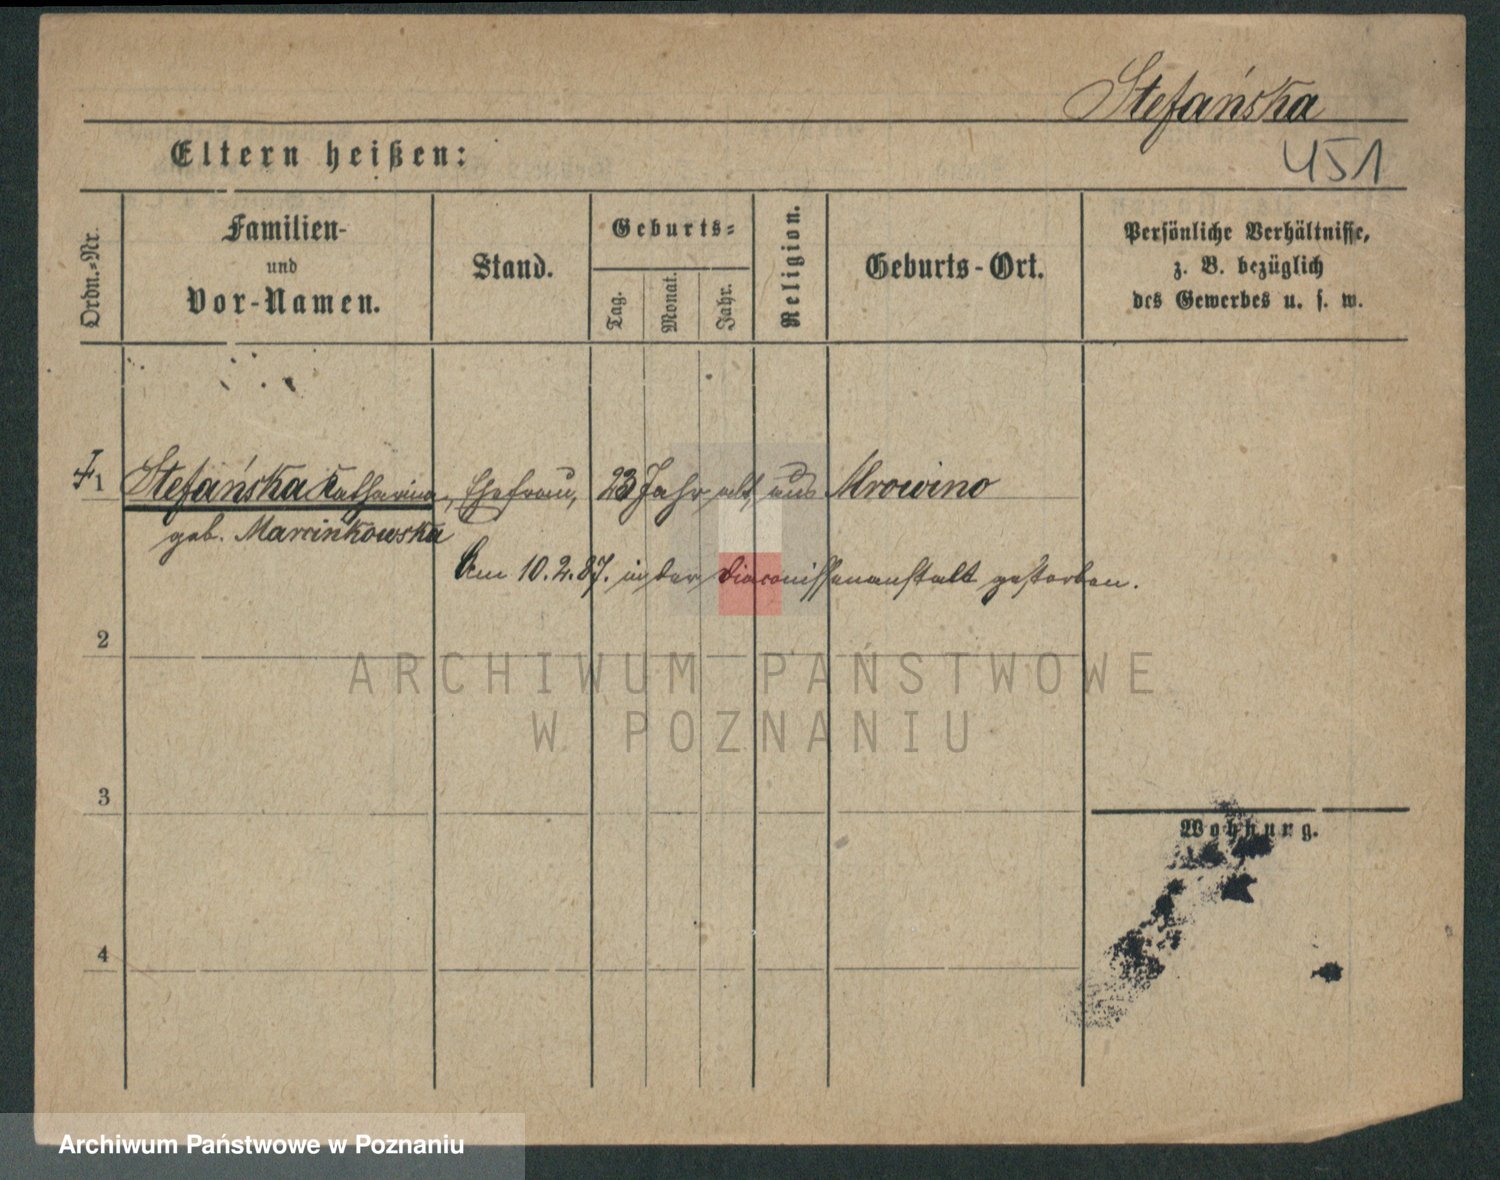 Stefańska
451
Eltern heißen:
Ordn.-Nr.
Familien-
und
Vor-Namen.
Stand.
Geburts-
Tag.
Monat.
Jahr.
Religion.
Geburts-Ort.
Persönliche Verhältnisse,
z. B. bezüglich
des Gewerbes u. s. w.
1 Stefańska Katharina, Ehefrau, 23 Jahr alt, aus Mrowino
geb. Marcinkowska
Am 10.2.87. in der Diaconissenanstalt gestorben.
2
ARCHIWUM PAŃSTWOWE
W POZNANIU
3
Wohnung.
4
Archiwum Państwowe w Poznaniu